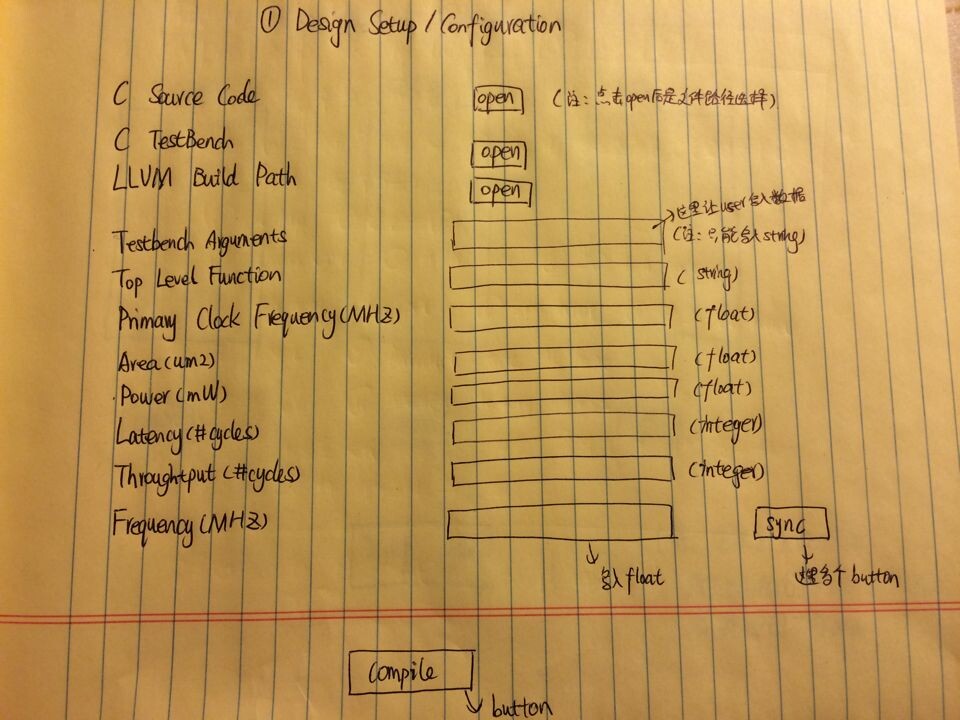 ① Design Setup/Configuration
C Source Code open (注：点击open后是文件路径选择)
C TestBench open
LLVM Build Path open
这里让user输入数据
Testbench Arguments (注：只能输入string)
Top Level Function (string)
Primary Clock Frequency(MHZ) (float)
Area(um2) (float)
Power(mW) (float)
Latency(#cycles) (integer)
Throughtput(#cycles) (integer)
Frequency(MHZ) sync
输入float 这里多个button
Compile
button